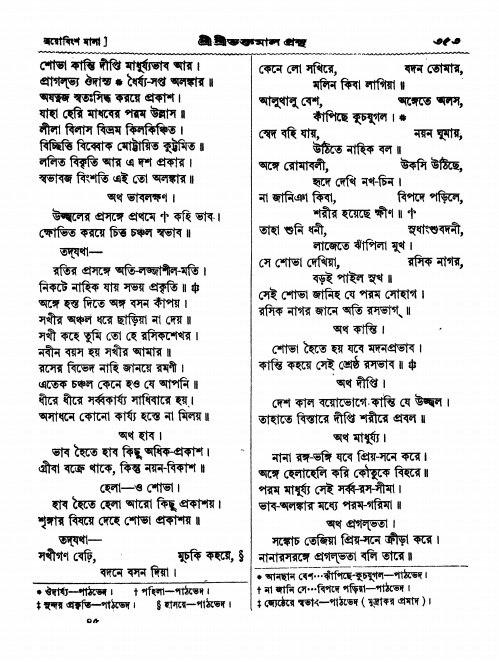 ত্রয়োবিংশ মালা ] শ্রীশ্রীভক্তমাল গ্রন্থ ৩৫৩
শোভা কান্তি দীপ্তি মাধুর্য্যভাব আর।
প্রাগল্‌ভ্য ঔদাস্ত * ধৈর্য্য-সপ্ত অলঙ্কার॥
অযত্নজ স্বতঃসিদ্ধ করয়ে প্রকাশ।
যাহা হেরি মাধবের পরম উল্লাস॥
লীলা বিলাস বিভ্রম কিলকিঞ্চিত।
বিচ্ছিত্তি বিব্বোক মোট্টায়িত কুট্টমিত॥
ললিত বিকৃতি আর এ দশ প্রকার।
স্বভাবজ বিংশতি এই তো অলঙ্কার॥
অথ ভাবলক্ষণ।
উজ্জ্বলের প্রসঙ্গে প্রথমে † কহি ভাব।
ক্ষোভিত করয়ে চিত্ত চঞ্চল স্বভাব॥
তদ্‌যথা—
রতির প্রসঙ্গে অতি-লজ্জাশীল-মতি।
নিকটে নাহিক যায় সভয় প্রকৃতি॥ ‡
অঙ্গে হস্ত দিতে অঙ্গ বসন কাঁপয়।
সখীর অঞ্চল ধরে ছাড়িয়া না দেয়॥
সখী কহে তুমি তো হে রসিকশেখর।
নবীন বয়স হয় সখীর আমার॥
রসের বিভেদ নাহি জানয়ে রমণী।
এতেক চঞ্চল কেনে হও যে আপনি॥
ধীরে ধীরে সর্ব্বকার্য্য সাধিবারে হয়।
অসাধনে কোনো কার্য্য হস্তে না মিলয়॥
অথ হাব।
ভাব হৈতে হাব কিছু অধিক-প্রকাশ।
গ্রীবা বক্রে থাকে, কিন্তু নয়ন-বিকাশ॥
হেলা—ও শোভা।
হাব হৈতে হেলা আরো কিছু প্রকাশয়।
শৃঙ্গার বিষয়ে দেহে শোভা প্রকাশয়॥
তদ্‌যথা—
সখীগণ বেঢ়ি, মুচকি কহয়ে, §
বদনে বসন দিয়া।
* ঔদার্য্য—পাঠভেদ। † পহিলা—পাঠভেদ।
‡ সুন্দর প্রকৃতি—পাঠভেদ। § হাসয়ে—পাঠভেদ।
কেনে লো সখিরে, বদন তোমার,
মলিন কিবা লাগিয়া॥
আলুথালু বেশ, অঙ্গেতে অলস,
কাঁপিছে কুচযুগল। *
স্বেদ বহি যায়, নয়ন ঘুমায়,
উঠিতে নাহিক বল॥
অঙ্গে রোমাবলী, উকসি উঠিছে,
হৃদে দেখি নখ-চিন।
না জানিঞা কিবা, বিপদে পড়িলে,
শরীর হয়েছে ক্ষীণ॥ †
তাহা শুনি ধনী, সুধাংশুবদনী,
লাজেতে ঝাঁপিলা মুখ।
সে শোভা দেখিয়া, রসিক নাগর,
বড়ই পাইল সুখ॥
সেই শোভা জানিহ যে পরম সোহাগ।
রসিক নাগর জানে অতি রসভাগ॥
অথ কান্তি।
শোভা হৈতে হয় যবে মদনপ্রভাব।
কান্তি কহয়ে সেই শ্রেষ্ঠ রসভাব॥ ‡
অথ দীপ্তি।
দেশ কাল বয়োভোগে কান্তি যে উজ্জ্বল।
তাহাতে বিস্তারে দীপ্তি শরীরে প্রবল॥
অথ মাধুর্য্য।
নানা রঙ্গ-ভঙ্গি যবে প্রিয়-সনে করে।
অঙ্গে হেলাহেলি করি কৌতুকে বিহরে॥
পরম মাধুর্য্য সেই সর্ব্ব-রস-সীমা।
ভাব-অলঙ্কার মধ্যে পরম-গরিমা॥
অথ প্রগল্‌ভতা।
সঙ্কোচ তেজিয়া প্রিয়-সনে ক্রীড়া করে।
নানারসরঙ্গে প্রগল্‌ভতা বলি তারে॥
* আনছান বেশ···কাঁপিছে-কুচযুগল—পাঠভেদ।
† না জানি সে···বিপদে পড়িয়া—পাঠভেদ।
‡ জ্যেষ্ঠেরে স্বভাব—পাঠভেদ (মুদ্রাকর প্রমাদ)।